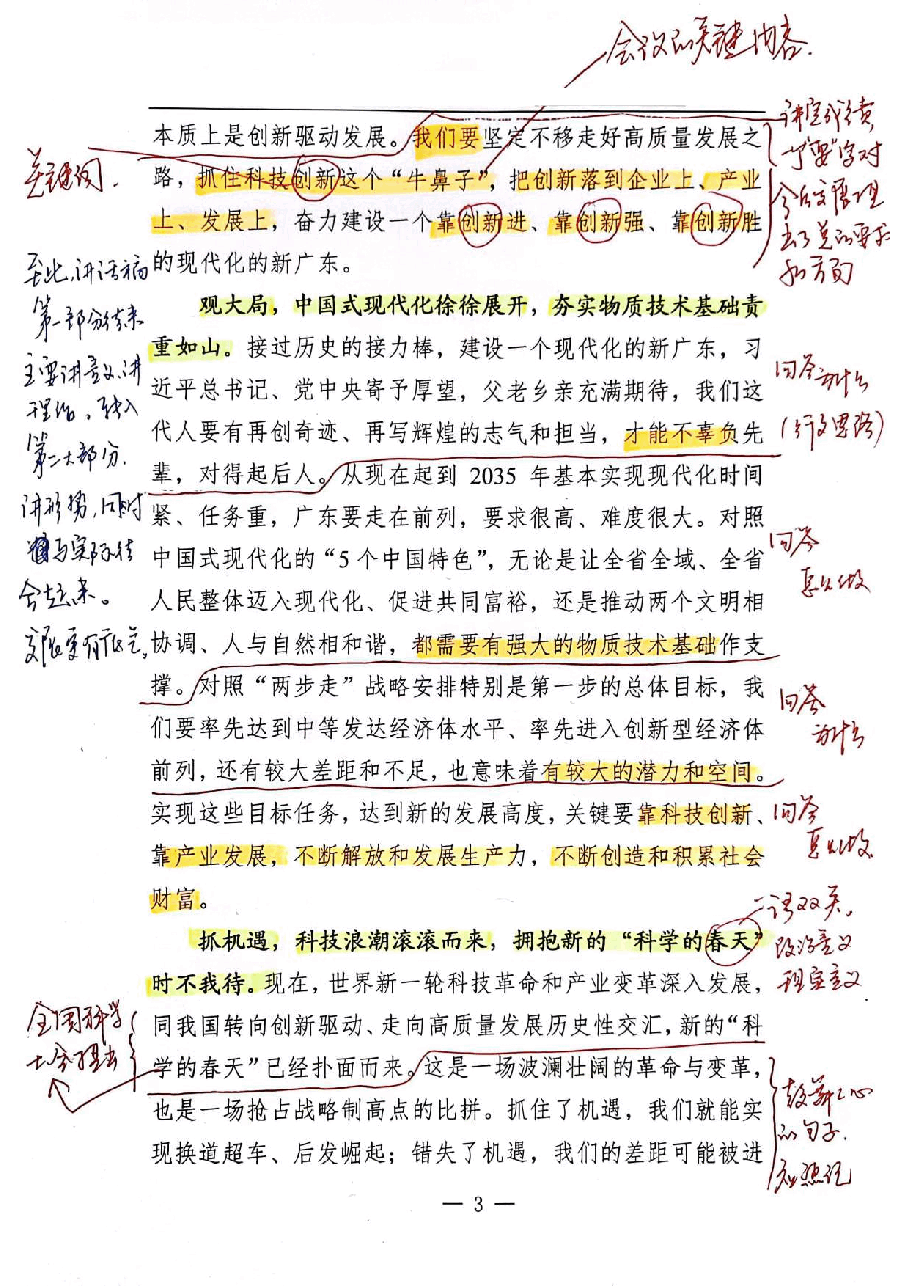 会议的关键内容.
本质上是创新驱动发展。我们要坚定不移走好高质量发展之
路，抓住科技创新这个“牛鼻子”，把创新落到企业上、产业
上、发展上，奋力建设一个靠创新进、靠创新强、靠创新胜
的现代化的新广东。
观大局，中国式现代化徐徐展开，夯实物质技术基础责
重如山。接过历史的接力棒，建设一个现代化的新广东，习
近平总书记、党中央寄予厚望，父老乡亲充满期待，我们这
代人要有再创奇迹、再写辉煌的志气和担当，才能不辜负先
辈，对得起后人。从现在起到 2035 年基本实现现代化时间
紧、任务重，广东要走在前列，要求很高、难度很大。对照
中国式现代化的“5个中国特色”，无论是让全省全域、全省
人民整体迈入现代化、促进共同富裕，还是推动两个文明相
协调、人与自然相和谐，都需要有强大的物质技术基础作支
撑。对照“两步走”战略安排特别是第一步的总体目标，我
们要率先达到中等发达经济体水平、率先进入创新型经济体
前列，还有较大差距和不足，也意味着有较大的潜力和空间。
实现这些目标任务，达到新的发展高度，关键要靠科技创新、
靠产业发展，不断解放和发展生产力，不断创造和积累社会
财富。
抓机遇，科技浪潮滚滚而来，拥抱新的“科学的春天”
时不我待。现在，世界新一轮科技革命和产业变革深入发展，
同我国转向创新驱动、走向高质量发展历史性交汇，新的“科
学的春天”已经扑面而来。这是一场波澜壮阔的革命与变革，
也是一场抢占战略制高点的比拼。抓住了机遇，我们就能实
现换道超车、后发崛起；错失了机遇，我们的差距可能被进
— 3 —
关键词.
至此,讲话稿
第一部分结束
主要讲意义,讲
理论。转入
第二大部分.
讲形势,同时
与实际结
合起来。
全国科学
大会提出
讲完成绩
一个“要”字对
今后发展提
出了总的要求
和方向
回答为什么
(行文思路)
回答
怎么做
回答
为什么
回答
怎么做
一语双关,
政治意义
现实意义
鼓舞人心
的句子.
应熟记